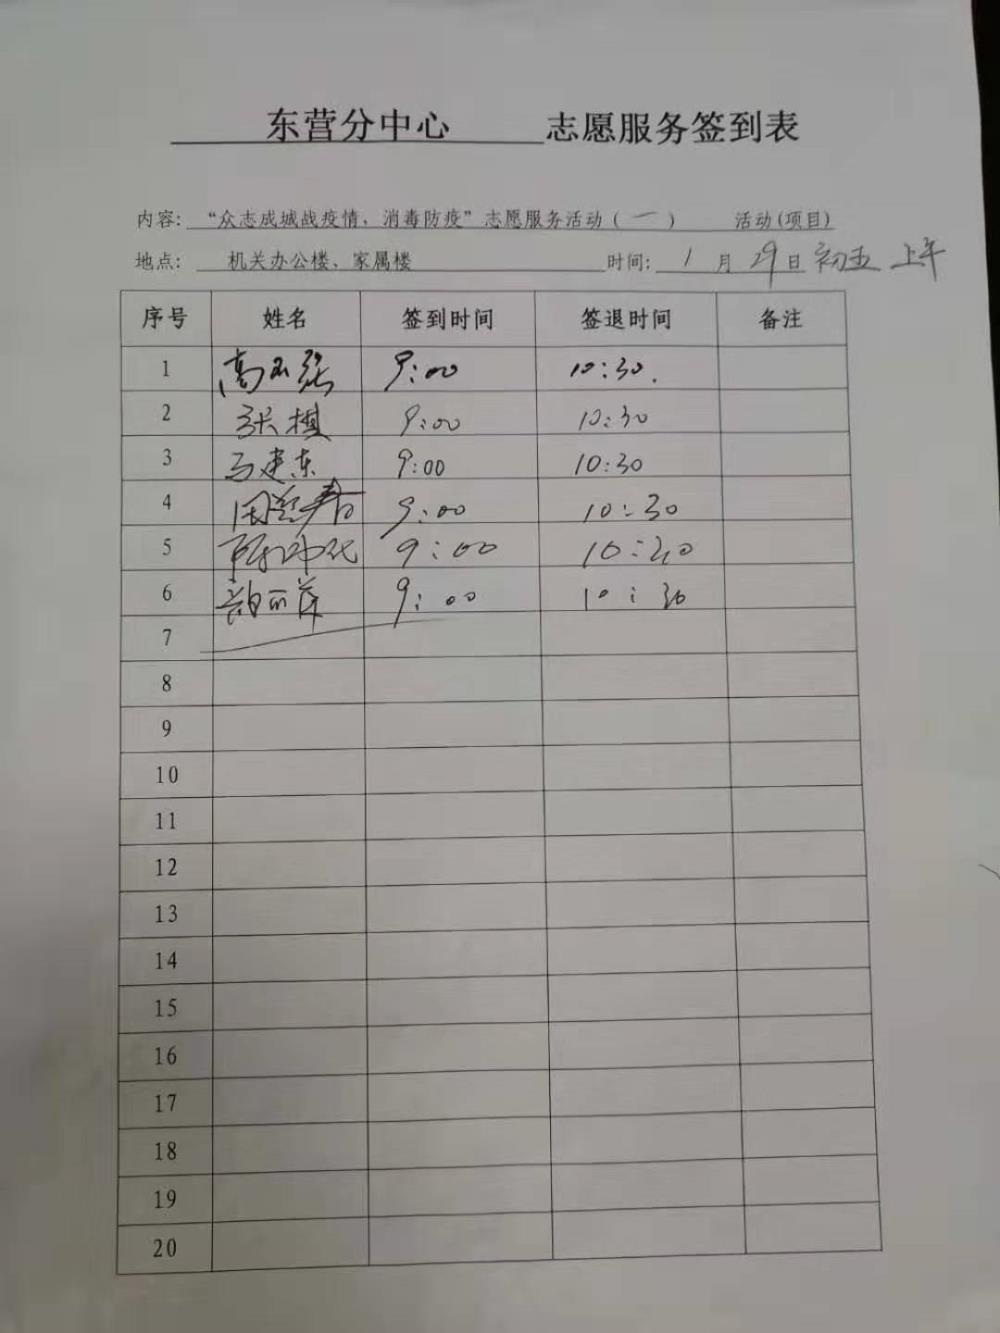 东营分中心 志愿服务签到表
内容: “众志成城战疫情，消毒防疫”志愿服务活动（一） 活动(项目)
地点: 机关办公楼、家属楼 时间: 1月29日 初五 上午
序号 姓名 签到时间 签退时间 备注
1 高玉强 9:00 10:30.
2 张棋 9:00 10:30
3 马建东 9:00 10:30
4 9:00 10:30
5 9:00 10:30
6 9:00 10:30
7
8
9
10
11
12
13
14
15
16
17
18
19
20